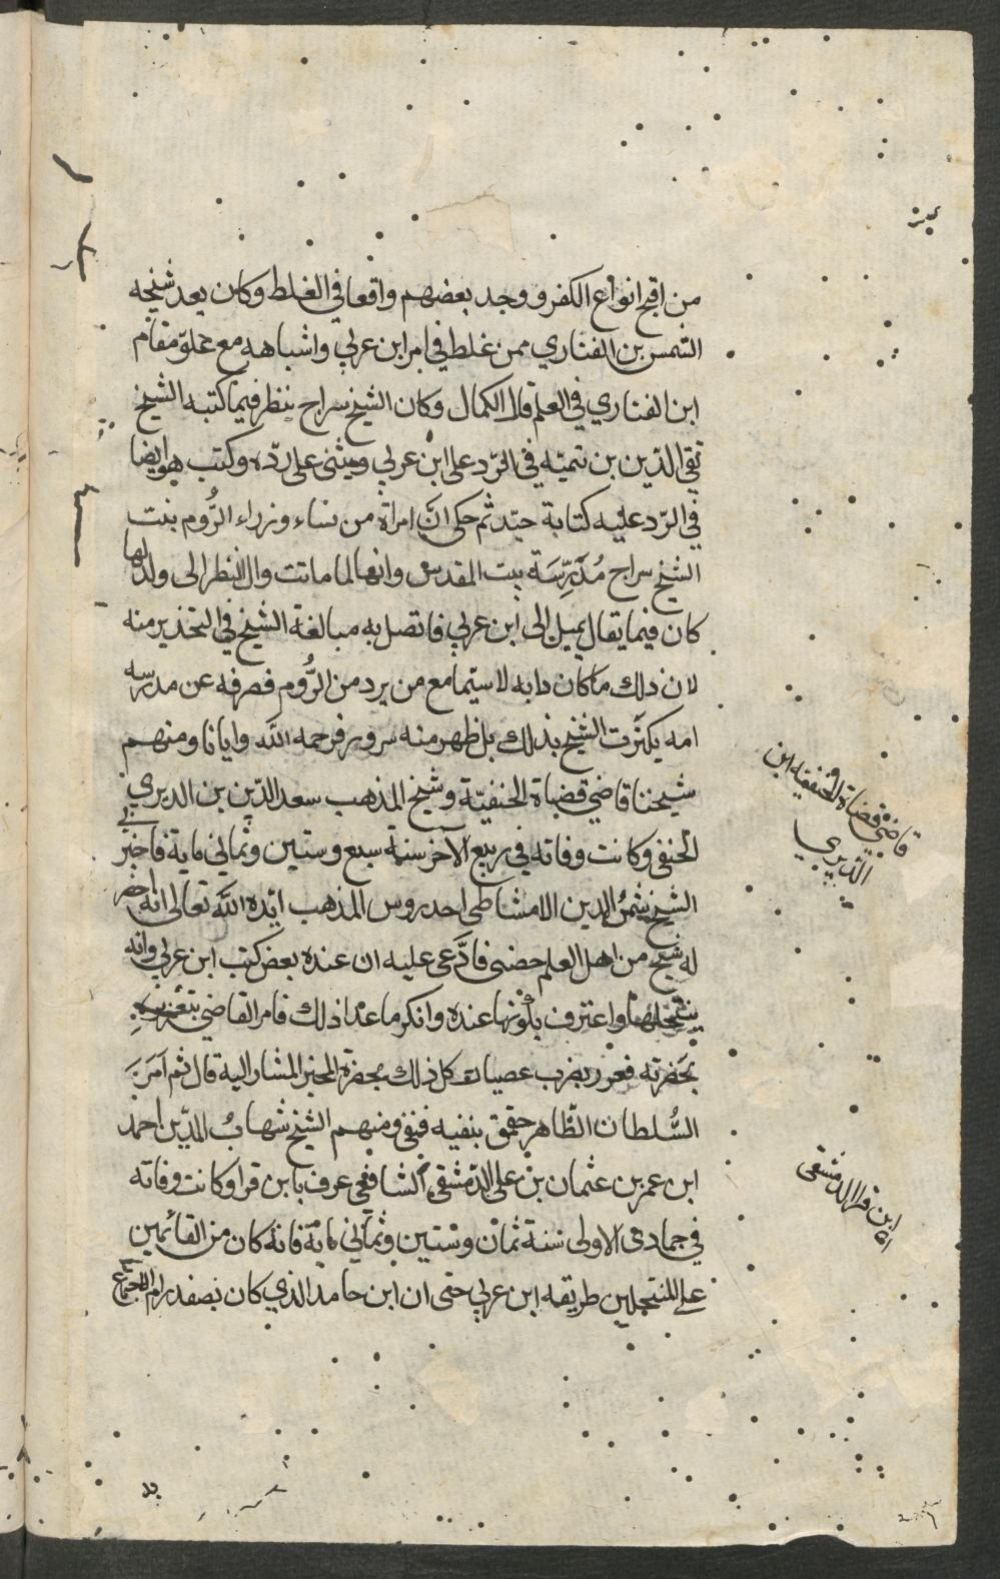 من اقبح انواع الكفر ووجد بعضهم واقعا في الغلط وكان يعد شيخه
الشمس بن الفناري ممن غلط في امر ابن عربي واشباهه مع علو مقام
ابن الفناري في العلم قال الكمال وكان الشيخ سراج ينظر فيما كتبه الشيخ
تقي الدين بن تيمية في الرد على ابن عربي ويثنى على رده وكتب هو ايضا
في الرد عليه كتابة جيد ثم حكى انّ امراة من نساء وزراء الرُّوم بنت
الشيخ سراج مُدَرِّسَة ببيت المقدس وانها لما ماتت وال النظر الى ولدلها
كان فيما يقال يميل الى ابن عربي فاتصل به مبالغة الشيخ في التحذير منه
لان ذلك ما كان دابه لا سيما مع من يرد من الرُّوم فصرفه عن مدرسه
امه يكترت الشيخ بذلك بل ظهر منه سرور فرحمه الله وايانا ومنهم
شيخنا قاضي قضاة الحنفيّة وشيخ المذهب سعد الدّين بن الديري
الحنفي وكانت وفاته في ربيع الآخر سنة سبع وستين وثماني ماية فاخبرني
الشيخ شمس الدين الامشاطي احد روس المذهب ايّده الله تعالى انه احضر
له شيخ من اهل العلم حضنى فادَّعى عليه ان عنده بعض كتب ابن عربي وانه
ينتحلها واعترف بكونها عنده وانكر ما عدا ذلك فامر القاضي بتعزيره
بحَضرته فعزر بضرب عصيات كل ذلك بحضرة المخبر المشار اليه قال ثم امَرَ
السُّلطان الظّاهر جقمق بنفيه فنفى ومنهم الشيخ شهابُ الدّين احمد
ابن عمر بن عثمان بن على الدّمشقي الشافعي عرف بابن قرا وكانت وفاته
في جمادى الاولى سنة ثمان وستين وثماني ماية فانه كان من القائمين
على المنتحلين طريقه ابن عربي حتى ان ابن حامد الذي كان بصفد رام الاجتماع
قاضي قضاة الحنفيه ابن
الديري
ابن قرا الدمشقى